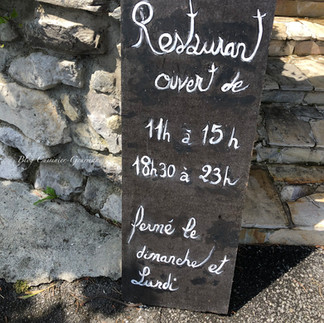 Restaurant
ouvert de
11h à 15h
18h30 à 23h
fermé le
dimanche et
Lundi
Blog Cuisinier-Gourmand